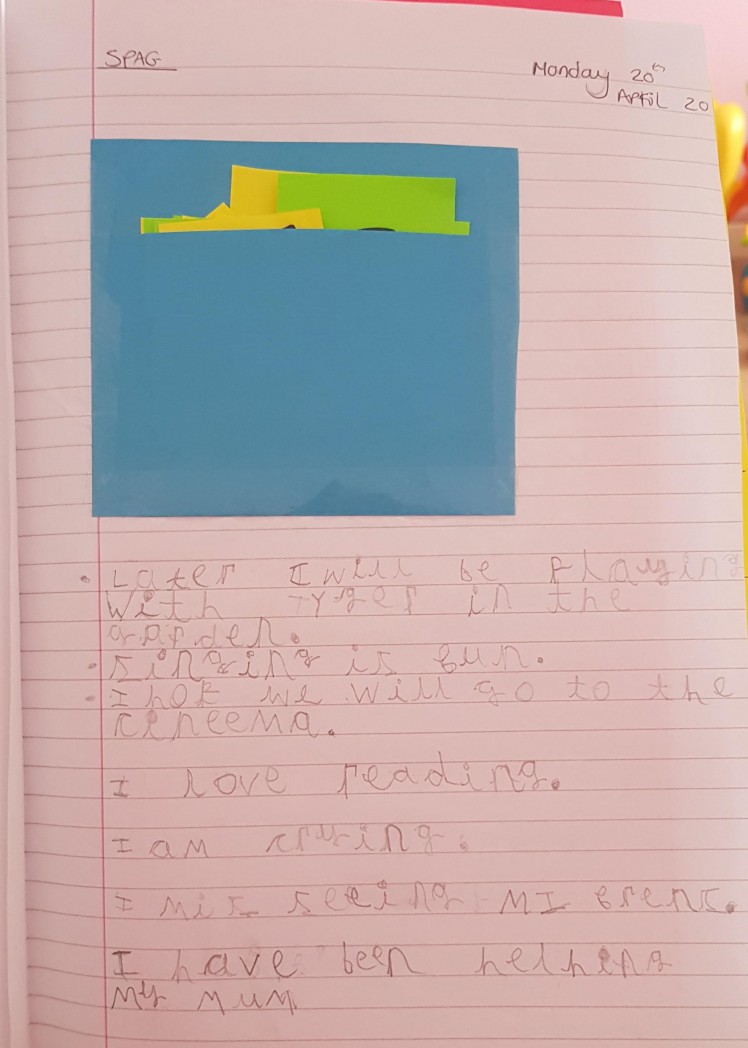 SPAG
Monday 20th
April 20
• Later I will be Playing
with Tyger in the
garden.
• Singing is fun.
• I hop we will go to the
cineema.
I love reading.
I am crying.
I mis seeing MI frens.
I have been helping
My mum